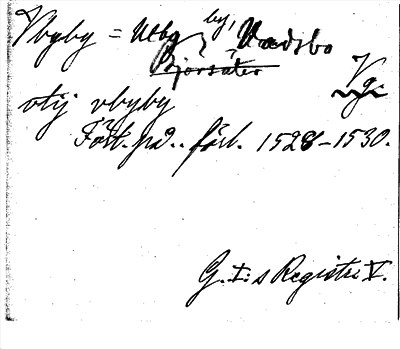 Vbyby = Utby, Vadsbo
Björsäter Vg.
vtij vbyby
Fört. på.. förl. 1528-1530.
G. I:s Registr. V.